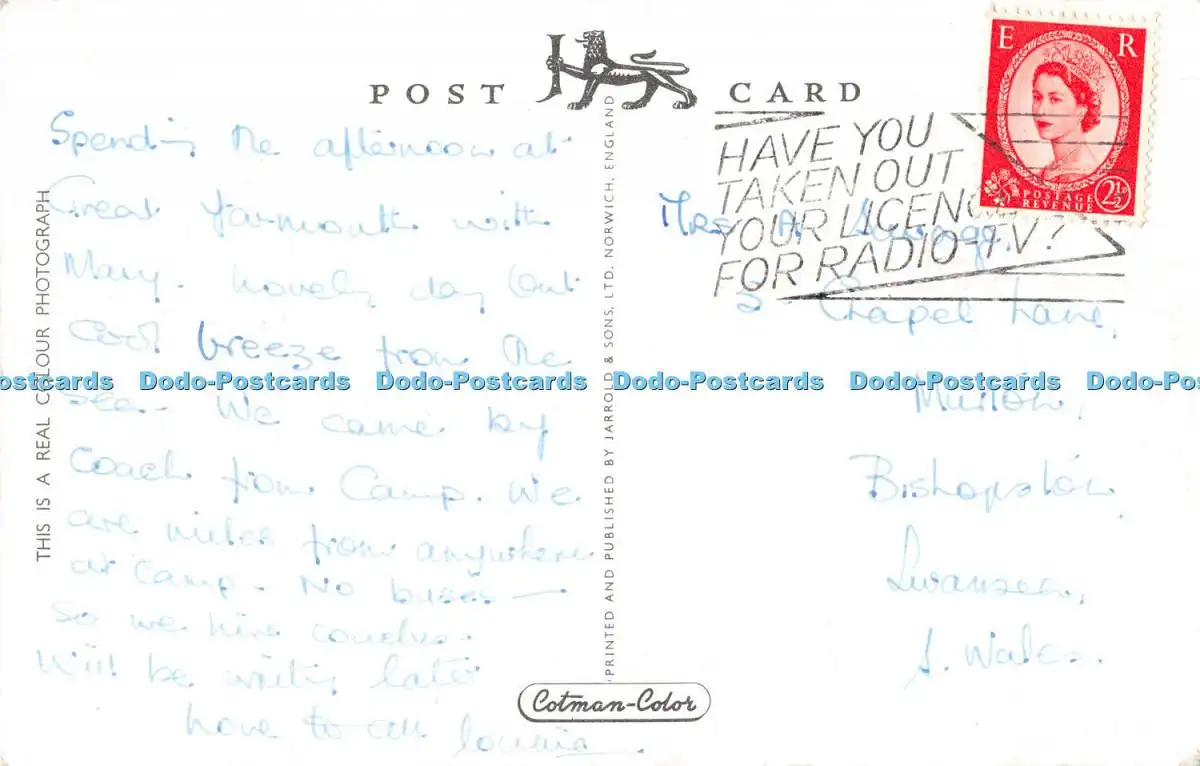 POST CARD
Spending the afternoon at
Great Yarmouth with
Mary. Lovely day but
cool breeze from the
sea. We came by
coach from Camp. We
are miles from anywhere
at camp. No buses —
so we hire coaches.
Will be writing later
Love to all
THIS IS A REAL COLOUR PHOTOGRAPH
PRINTED AND PUBLISHED BY JARROLD & SONS, LTD. NORWICH, ENGLAND
Cotman-Color
E R
POSTAGE
REVENUE
2½D
HAVE YOU
TAKEN OUT
YOUR LICENCE
FOR RADIO-TV?
Mrs A.
2 Chapel Lane,
Murton,
Bishopston,
Swansea,
S. Wales.
Dodo-Postcards Dodo-Postcards Dodo-Postcards Dodo-Postcards